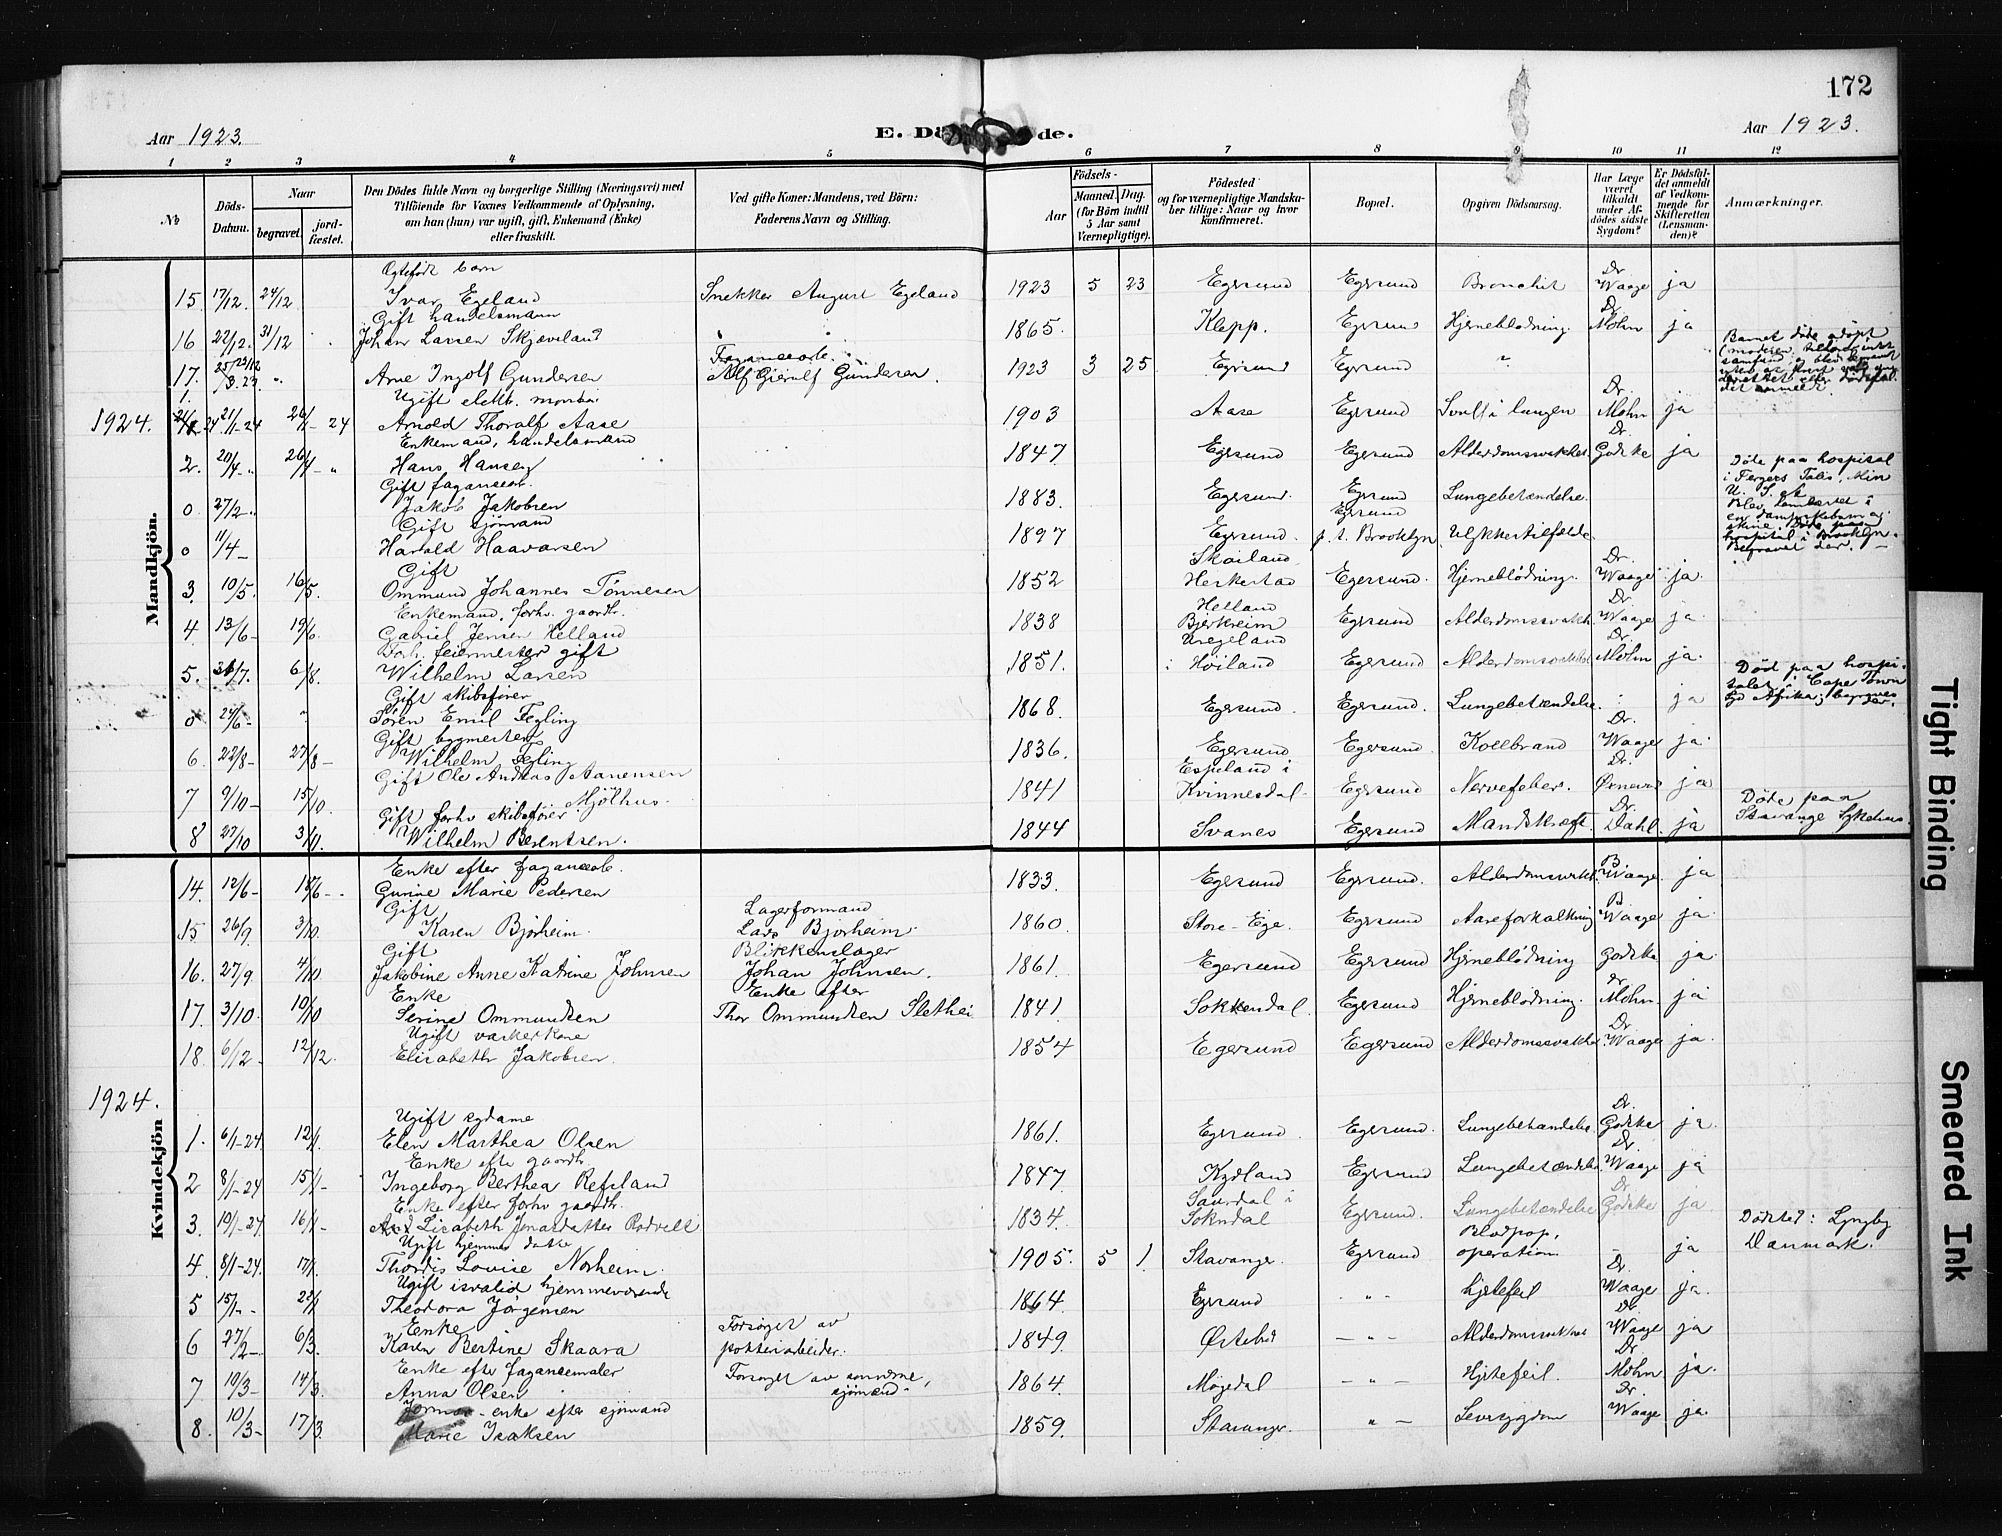 172
Aar 1923.
E. Dö de.
Aar 1923.
1 2 3 4 5 6 7 8 9 10 11 12
No
Döds-Datum.
Naar
begravet.
jord-fæstet.
Den Dödes fulde Navn og borgerlige Stilling (Næringsvei) med
Tilföiende for Voxnes Vedkommende af Oplysning,
om han (hun) var ugift, gift, Enkemand (Enke)
eller fraskilt.
Ved gifte Koner: Mandens, ved Börn:
Faderens Navn og Stilling.
Födsels-
Aar
Maaned. Dag.
(for Börn indtil
5 Aar samt
Værnepligtige).
Födested
og for værnepligtige Mandska-
ber tillige: Naar og hvor
konfirmeret.
Bopæl.
Opgiven Dödsaarsag.
Har Læge
været
tilkaldt
under Af-
dödes sidste
Sygdom?
Er Dödsfal-
det anmeldt
af Vedkom-
mende for
Skifteretten
(Lensman-
den)?
Anmærkninger.
Mandkjön.
Ægtefødt barn
15 17/12. 24/12 Ivar Egeland Snekker August Egeland 1923 5 23 Egersund Egersund Bronchit Dr. Waage ja
Gift handelsmann
16 22/12. 31/12 Johan Larsen Skjæveland 1865. Klepp. Egersund Hjerneblødning. Dr. Mohn ja
17. Arne Ingolf Gundersen Alf Gjerulf Gundersen. 1923 3 25 Egersund Egersund
Barnet døde udøpt
1924.
Ugift elektr. montør
1. 21/1-24 26/1-24 Arnold Thoralf Aase 1903 Aase Egersund Svulst i lungen Dr. Mohn ja
Enkemand, handelsmand
2. 20/4-" 26/4-" Hans Hansen 1847 Egersund Egersund Alderdomssvakhet Dr. Godske ja
Gift fajansearb.
0 27/2-" Jakob Jakobsen 1883. Egersund. Egersund Lungebetændelse.
Døde paa hospital
i Fergers Falls, Min
U. S. A.
Gift sjömand
0 11/4- Harald Haavarsen 1897 Egersund. Egersund p.t. Brooklyn Ulykkestilfælde
Døde paa
hospital i Brooklyn.
Begravet der. -
Gift
3. 10/5. 16/5. Ommund Johannes Tönnesen 1852 Skailand Herkestad Egersund. Hjerneblödning. Dr. Waage ja.
Enkemand, forhv. gaardbr.
4 13/6- 19/6. Gabriel Jensen Helland 1838 Helland Bjerkreim Egersund Alderdomssvakh. Dr. Waage ja.
Forh. feiermester gift
5. 6/8. Wilhelm Larsen 1851. Høiland Egersund Alderdomssvakhet Dr. Mohn ja.
Gift skibsfører
0 24/6- " Sören Emil Fegling 1868. Egersund. Egersund. Lungebetændelse. ja
Død paa hospi-
talet i Cape Town
Syd Afrika, begravet der.
Gift bygmester
6. 22/8- 27/8- Wilhelm Fegling 1836. Egersund Egersund. Koldbrand Dr. Waage ja.
Gift Ole Andreas Aanensen
7 9/10- 15/10. Mjølhus. 1841 Espeland i Kvinnesdal Egersund Nervefeber. Dr. ja
Gift forhv skibsfører
8 27/10 3/11. Wilhelm Berentsen. 1844 Svanes Egersund Mandskræft. Dr. Dahl. ja
Døde paa
Stavanger Sykehus.
Kvindekjön
Enke efter fajansearb.
14. 12/6- 18/6- Gurine Marie Pedersen 1833. Egersund Egersund. Alderdomssvakh. Waage. ja
Gift Lagerformand
15 26/9 3/10. Karen Bjørheim. Lars Bjørheim. 1860 Store-Eige. Egersund Aareforkalkning Waage ja.
Gift Blikkenslager
16. 27/9 4/10 Jakobine Anne Katrine Johnsen Johan Johnsen. 1861. Egersund Egersund Hjerneblødning Godske ja.
Enke Enke efter
17. 3/10. 10/10 Serine Ommundsen Thor Ommundsen Slethei 1841. Sokkendal. Egersund Hjerneblödning. Dr. Mohn. ja
Ugift vaskerkone
18. 6/12- 12/12. Elisabeth Jakobsen. 1854 Egersund Egersund Alderdomssvakhet Dr. Waage ja.
1924.
Ugift sydame
1. 6/1-24 12/1. Elen Marthea Olsen 1861. Egersund. Egersund. Lungebetændelse Dr. Godske ja.
Enke efter gaardbr.
2 8/1-24 15/1- Ingeborg Berthea Refsland 1847. Kydland Egersund Lungebetændelse Dr. Waage ja
Enke efter forhv gaardbr.
3. 10/1-24 16/1- Lisabeth Jonasdatter Rodvelt 1834. Saurdal i Sokndal Egersund. Lungebetændelse Dr. Godske ja.
Ugift hjemmev datter
4. 8/1-24. 17/1. Thordis Lovise Norheim. 1905. 5 1. Stavanger. Egersund Blodprop, operation - ja
Dödsted: Lyngby
Danmark.
Ugift invalid hjemmeværende
5 15/1- 22/1 Theodora Jörgensen 1864. Egersund " - Hjertefeil Dr. Waage ja.
Enke Forsørget av
6 27/2- 6/3. Karen Bertine Skaara potteriarbeider. 1849. Ørstebø -"- Alderdomssvakhet Dr. Waage ja
Enke efter fajansemaler Forsørget av sønnene,
7 10/3- 14/3. Anna Olsen sjömænd. 1864. Mögedal -"- Hjertefeil Dr. Mohn ja.
enke efter sjömand
8. 10/3- 17/3. Marie Isaksen 1859. Stavanger. "- Leversygdom Dr. Waage ja.
Tight Binding
Smeared Ink